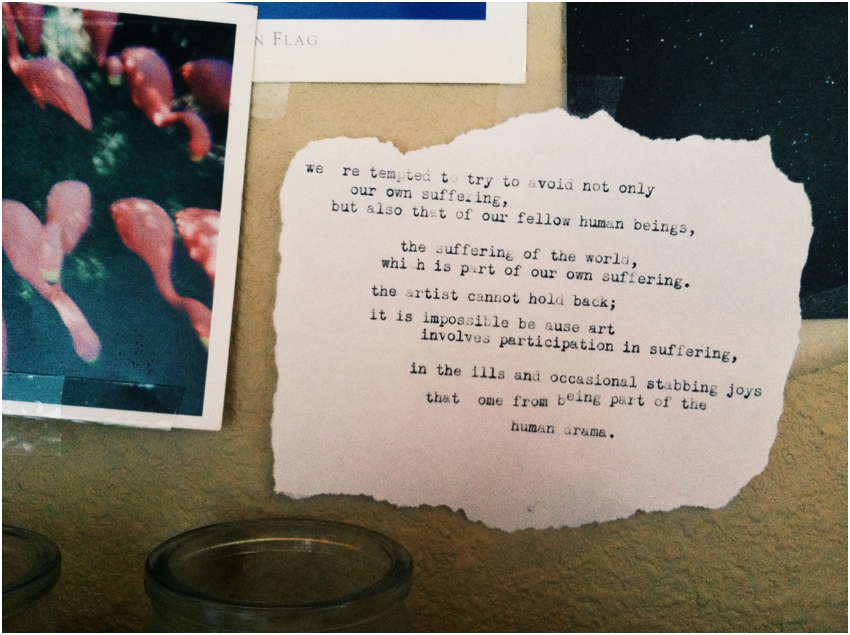 N FLAG
we re tempted to try to avoid not only
our own suffering,
but also that of our fellow human beings,
the suffering of the world,
whi h is part of our own suffering.
the artist cannot hold back;
it is impossible be ause art
involves participation in suffering,
in the ills and occasional stabbing joys
that ome from being part of the
human drama.